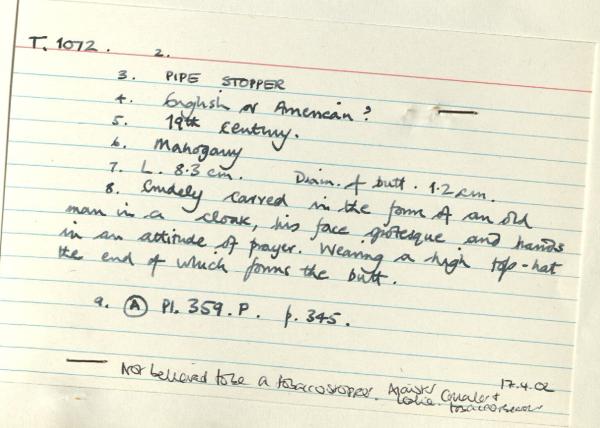 T. 1072. 2.
3. PIPE STOPPER
4. English or American?
5. 19th century.
6. Mahogany
7. L. 8.3 cm. Diam. of butt. 1.2 cm.
8. Crudely carved in the form of an old
man in a cloak, his face grotesque and hands
in an attitude of prayer. Wearing a high top-hat
the end of which forms the butt.
9. (A) Pl. 359. P. p. 345.
17.4.02
Not believed to be a tobacco stopper.